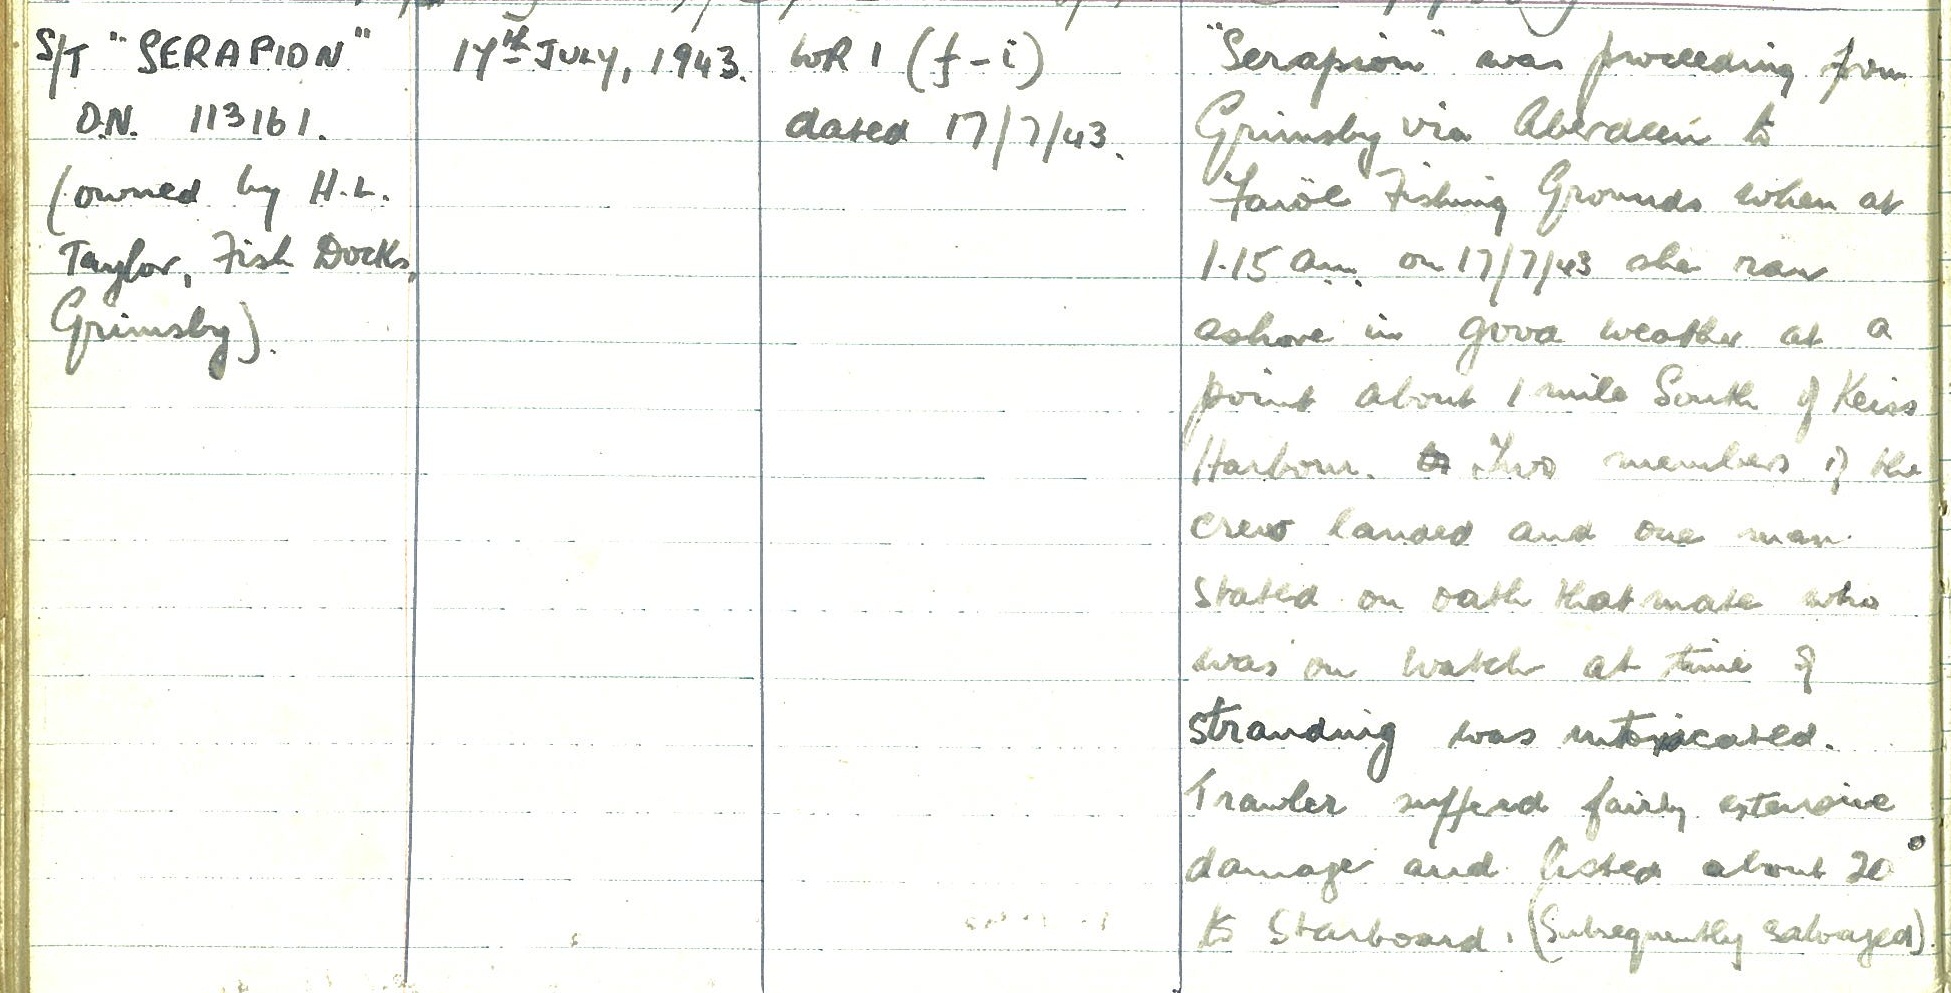 S/T "SERAPION"
O.N. 113161.
(owned by H.L.
Taylor, Fish Docks,
Grimsby).
17th JULY, 1943.
WR 1 (f-i)
dated 17/7/43.
"Serapion" was proceeding from
Grimsby via Aberdeen to
Faröe Fishing Grounds when at
1.15 a.m. on 17/7/43 she ran
ashore in good weather at a
point about 1 mile South of Keiss
Harbour. Two members of the
crew landed and one man
stated on oath that mate who
was on watch at time of
stranding was intoxicated.
Trawler suffered fairly extensive
damage and listed about 20°
to Starboard. (Subsequently salvaged).